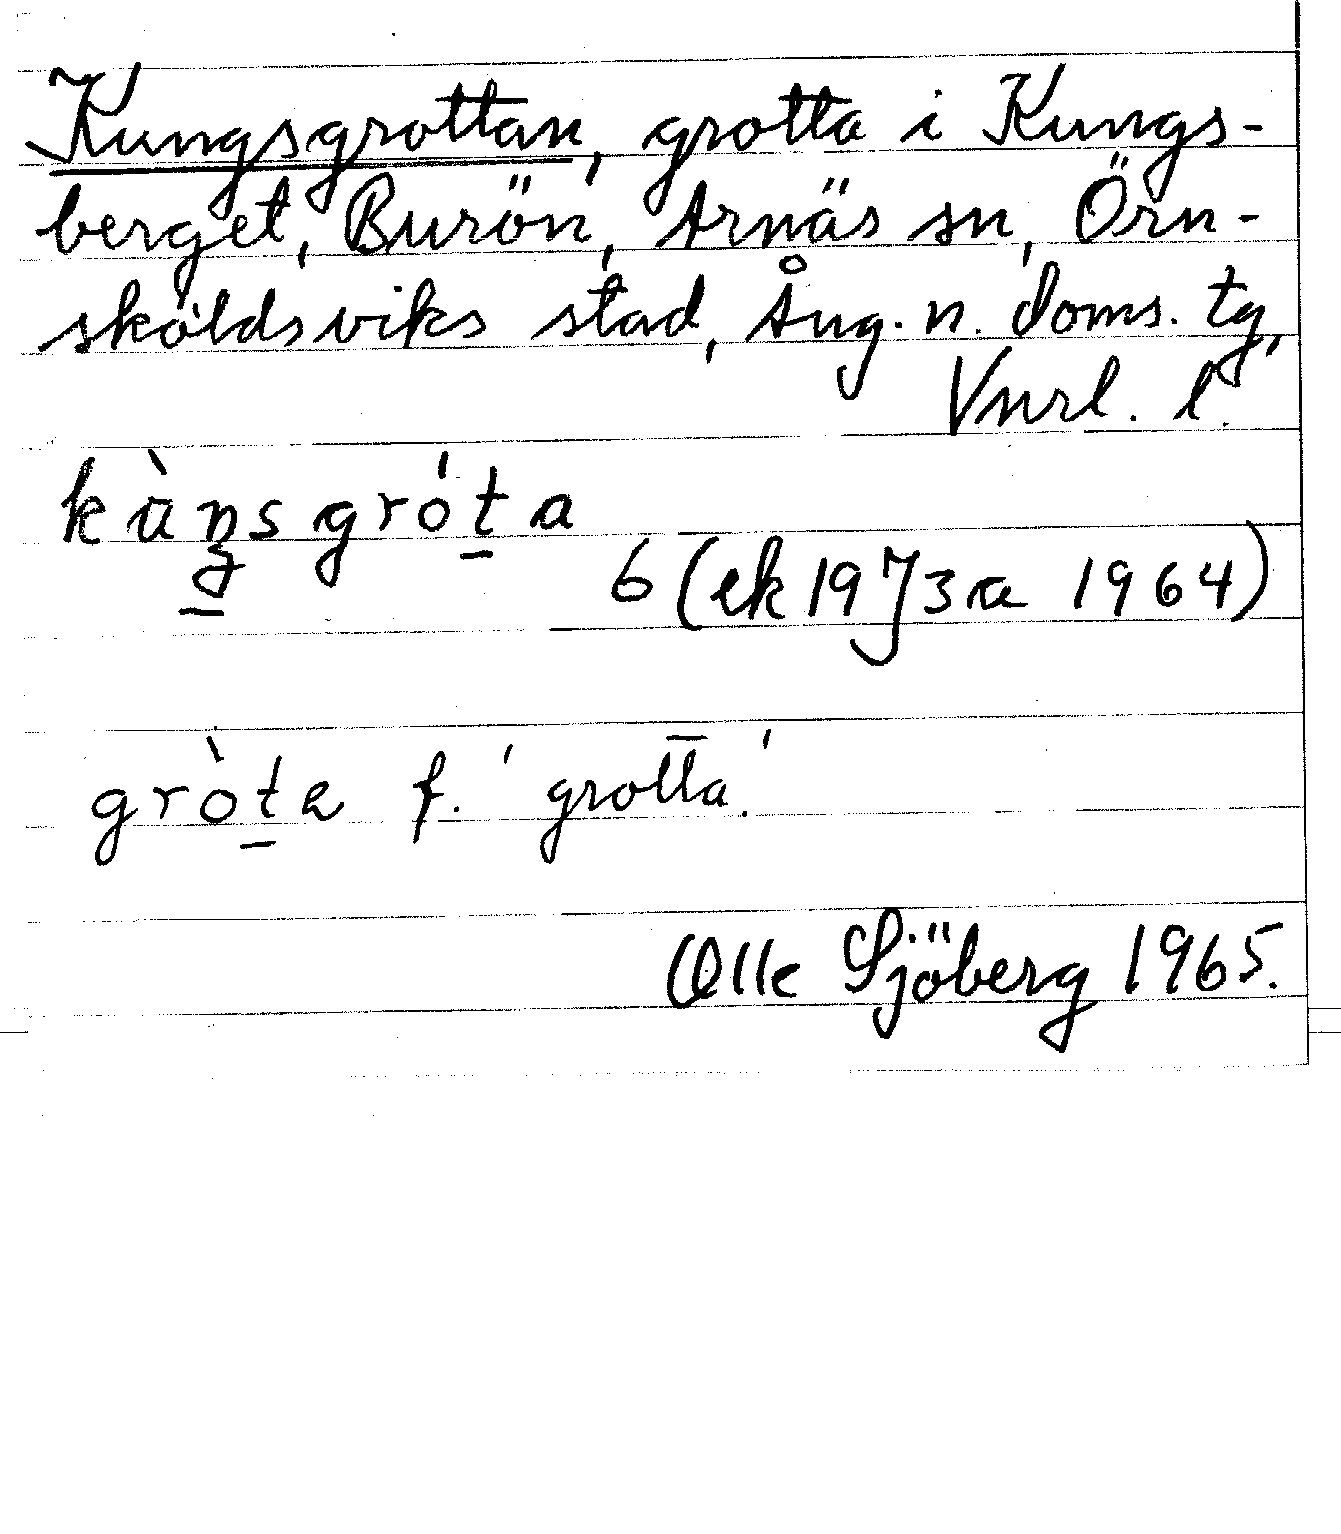 Kungsgrottan, grotta i Kungs-
berget, Burön, Arnäs sn, Örn-
sköldsviks stad, Ång. n. doms. tg,
Vnrl. l.
kùŋ̲sgrót̲a
6 (ek 19 J 3 a 1964)
gròt̲a f. 'grotta'.
Olle Sjöberg 1965.